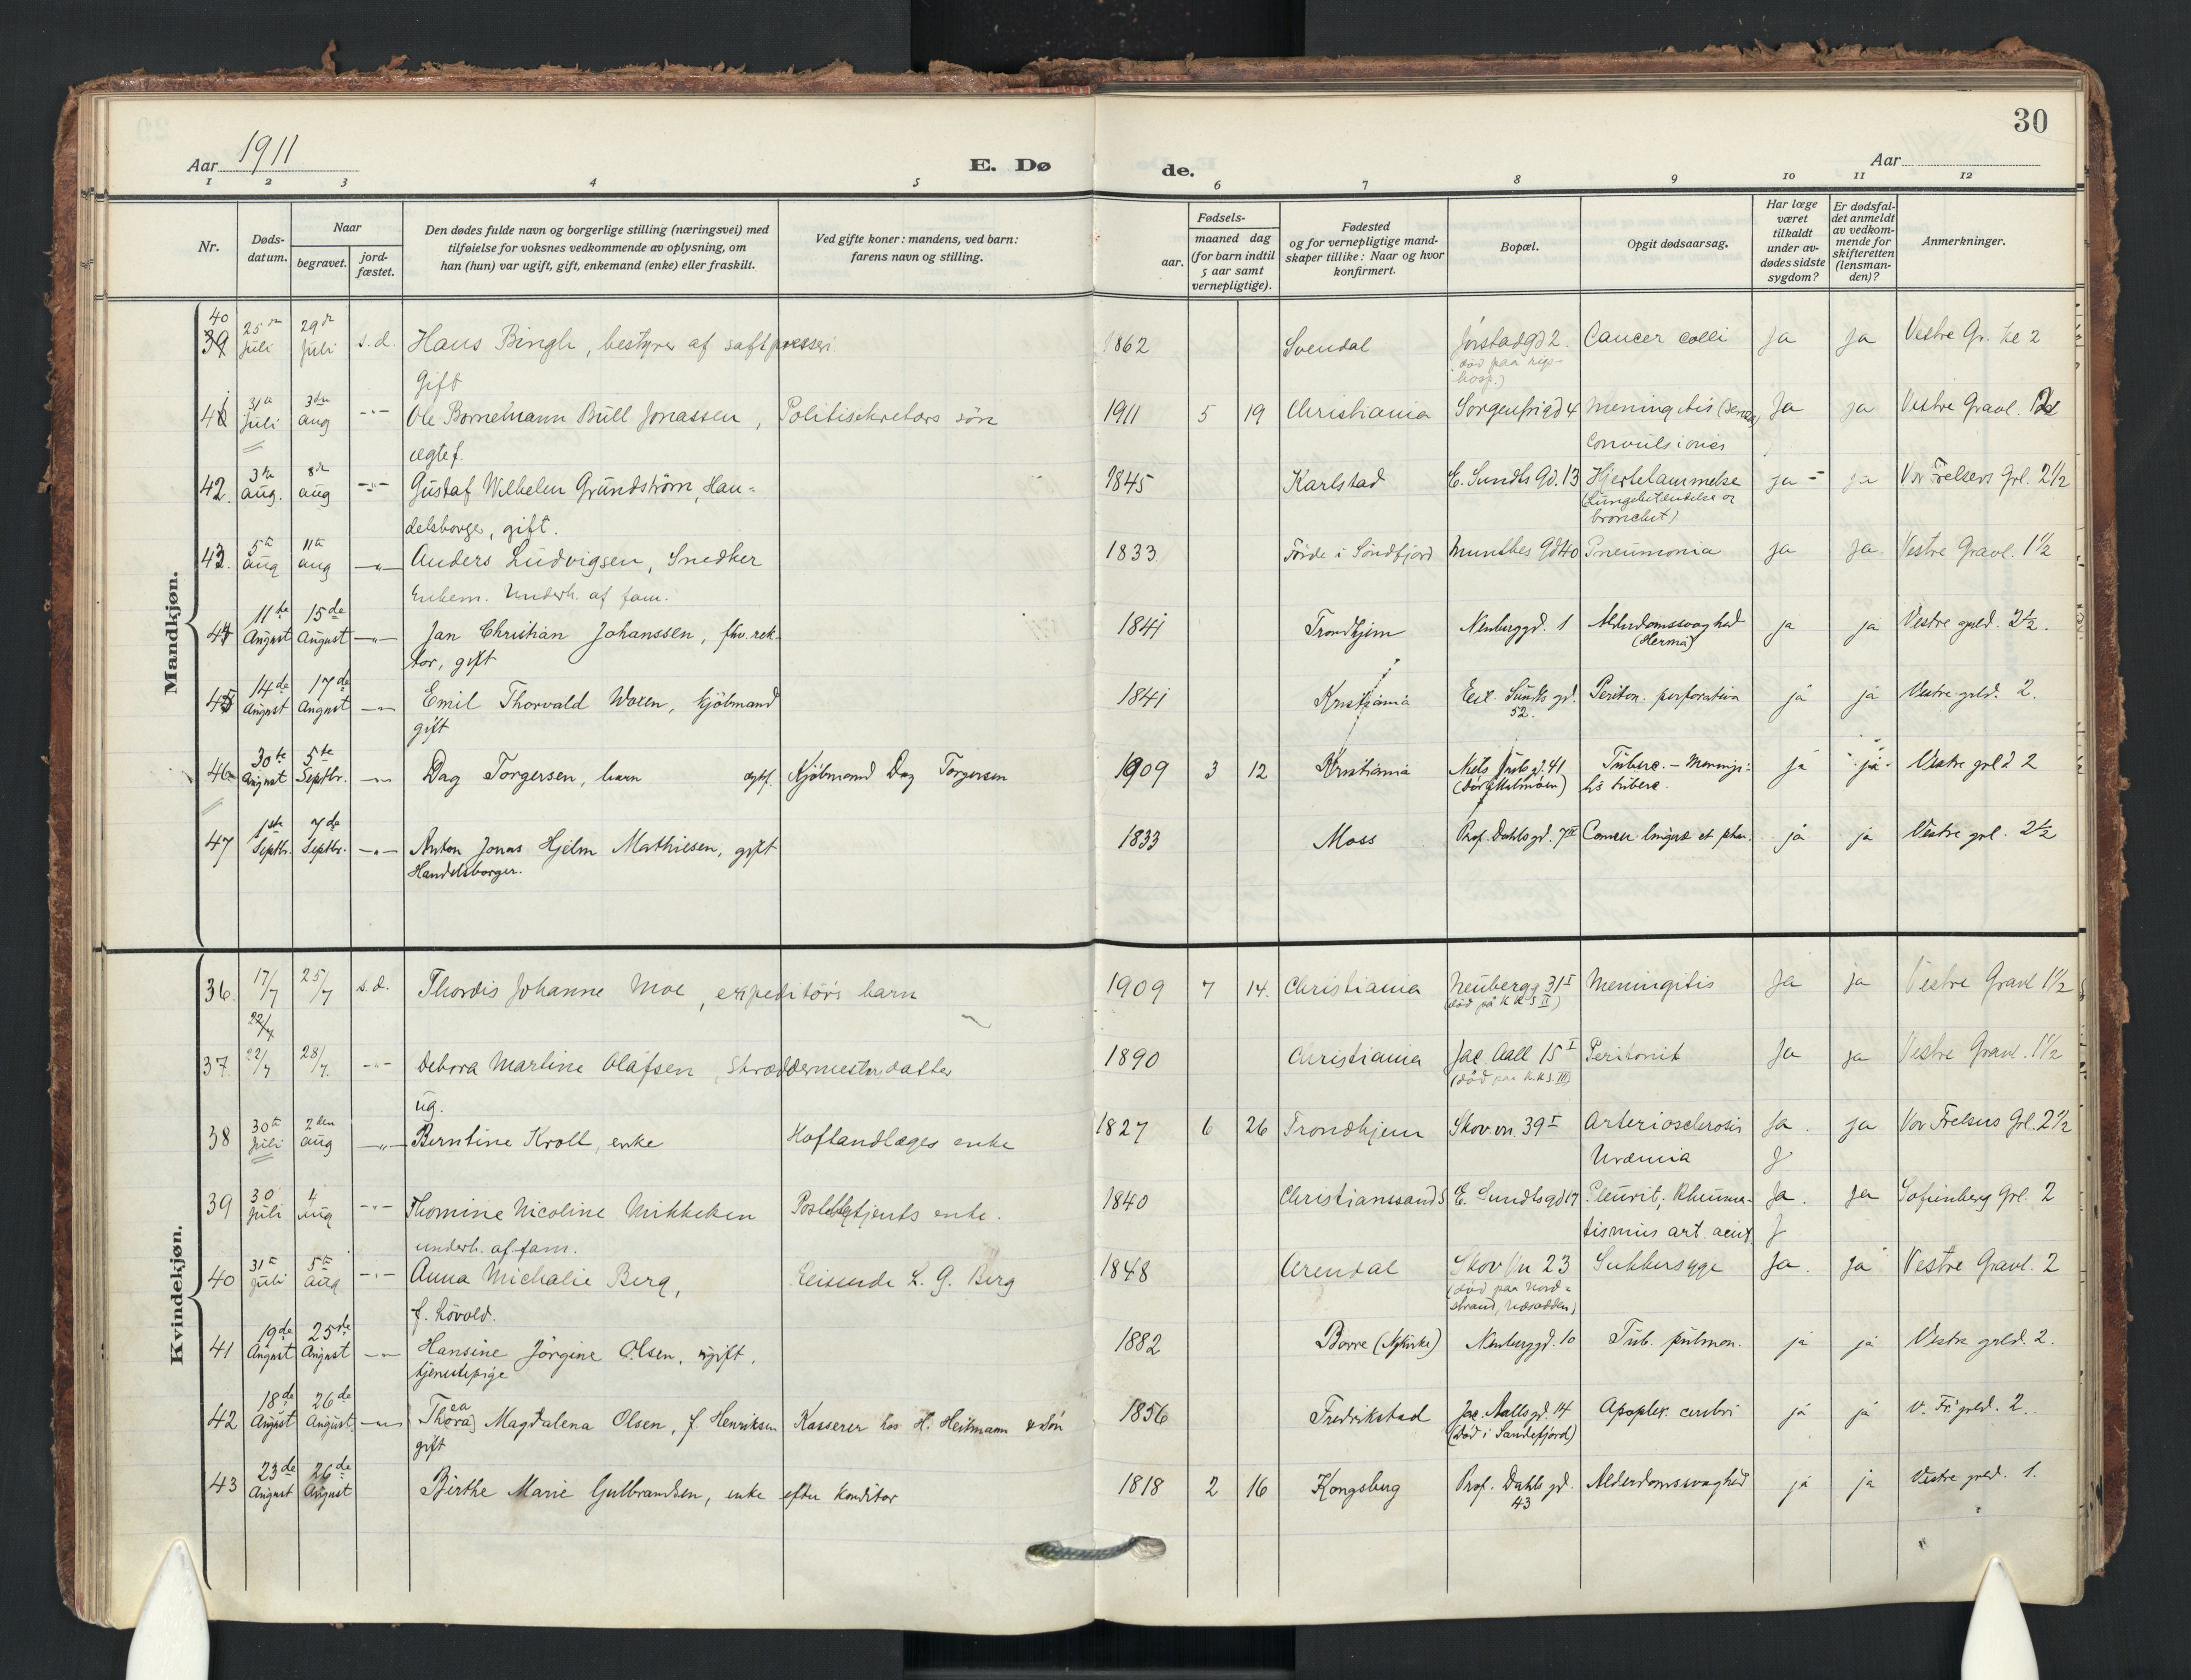 30
Aar 1911
E. Dø
de.
Aar
1 2 3 4 5 6 7 8 9 10 11 12
Nr.
Døds-
datum.
Naar
begravet.
jord-
fæstet.
Den dødes fulde navn og borgerlige stilling (næringsvei) med
tilføielse for voksnes vedkommende av oplysning, om
han (hun) var ugift, gift, enkemand (enke) eller fraskilt.
Ved gifte koner: mandens, ved barn:
farens navn og stilling.
Fødsels-
aar.
maaned dag
(for barn indtil
5 aar samt
vernepligtige).
Fødested
og for vernepligtige mand-
skaper tillike: Naar og hvor
konfirmert.
Bopæl.
Opgit dødsaarsag.
Har læge
været
tilkaldt
under av-
dødes sidste
sygdom?
Er dødsfal-
det anmeldt
av vedkom-
mende for
skifteretten
(lensman-
den)?
Anmerkninger.
Mandkjøn.
40
39 25de Juli 29de Juli s.d. Hans Bingh, bestyrer af saftpresseri 1862 Svendal 2 Cancer colli Ja Ja Vestre Gr. 2
Gift
41 31te Juli 3die aug -"- Ole Bornemann Bull Jonassen, Politisekretærs søn 1911 5 19 Christiania Sorgenfrigd 4 Meningitis Ja ja Vestre Gravl.
ægtef. Convulsiones
42. 3die aug. 8de aug -"- Gustaf Wilhelm Grundström, Han-
delsborger, gift. 1845 Karlstad E. Sundts Gd. 13 Hjertelammelse ja ja Vor Frelsers Grl. 2 1/2
(Lungebetændelse og
bronchit)
43. 5te aug 11te aug -"- Anders Ludvigsen, Snedker 1833 Förde i Söndfjord Munthes Gd 40 Pneumonia ja ja Vestre Gravl. 1 1/2
Enkem. Underh. af fam.
44 11te August 15de August -"- Jan Christian Johanssen, fhv. rek-
tor, gift 1841 Trondhjem Neuberggd. 1 Alderdomssvaghed ja ja Vestre gvld. 2 1/2.
45 14de August 17de August -"- Emil Thorvald Woxen, kjöbmand 1841 Kristiania Eil. Sundts gd.
52. Periton. perforativa ja ja Vestre gvld. 2.
gift
46 30te August 5te Septbr. -"- Dag Torgersen, barn ægtf. Kjöbmand Dag Torgersen 1909 3 12 Kristiania Niels Juels gd. 41 Tuberc. - Meningi-
tis tuberc. ja ja Vestre gvld 2
47 1ste Septbr. 7de Septbr. -"- Anton Jonas Hjelm Mathiesen, gift 1833 Moss Prof. Dahls gd. 7 III Cancer lingvæ et phar. ja ja Vestre gvl. 2 1/2
Handelsborger.
Kvindekjøn.
36. 17/7 25/7 s.d. Thordis Johanne Moe, expeditörs barn 1909 7 14. Christiania Neubergg 31 I Meningitis Ja ja Vestre Gravl 1 1/2
(död på K K S II)
22/7
37. 22/7 28/7. -"- Debora Martine Olafsen, Skræddermester, datter 1890 Christiania Jac. Aall 15 I Peritonit Ja ja Vestre Gravl. 1 1/2
ug. (död paa K.K.S. III)
38 30te Juli 2den aug -"- Berntine Kroll, enke Hoflandlæges enke 1827 6 26 Trondhjem Skov.vn. 39 I Arteriosclerosis Ja. ja Vor Frelsers Grl. 2 1/2
Uræmia
39 30 Juli 4 aug -"- Thomine Nicoline Mikkelsen enke. 1840 Christianssand S E. Sundtsgd 17 Pleurit; Rheuma-
tismus art. acut Ja. ja Sofienberg Grl. 2
underh. af fam.
40 31te Juli 5te aug -"- Anna Michalie Berg, Reisende L. G. Berg 1848 Arendal Skov Vn 23 Sukkersyge Ja. ja Vestre Gravl. 2
f. Lövold. (död paa Nord-
strand, Næsodden)
41 19de August 25de August -"- Hansine Jörgine Olsen, ugift, 1882 Borre (Nykirke) Neuberggd. 10 Tub. pulmon. ja ja Vestre gvld. 2.
tjenestepige
42 18de August 26de August -"- Thora ea Magdalena Olsen, f. Henriksen Kasserer hos H. Heitmann & Sön 1856 Fredrikstad Jac. Aalls gd. 14 Apoplex. cerebri ja ja V. Fr. gvld. 2.
gift (död i Sandefjord)
43 23de August 26de August Birthe Marie Gulbrandsen, enke efter Konditor 1818 2 16 Kongsberg Prof. Dahls gd.
43 Alderdomssvaghed ja ja Vestre gvld. 1.